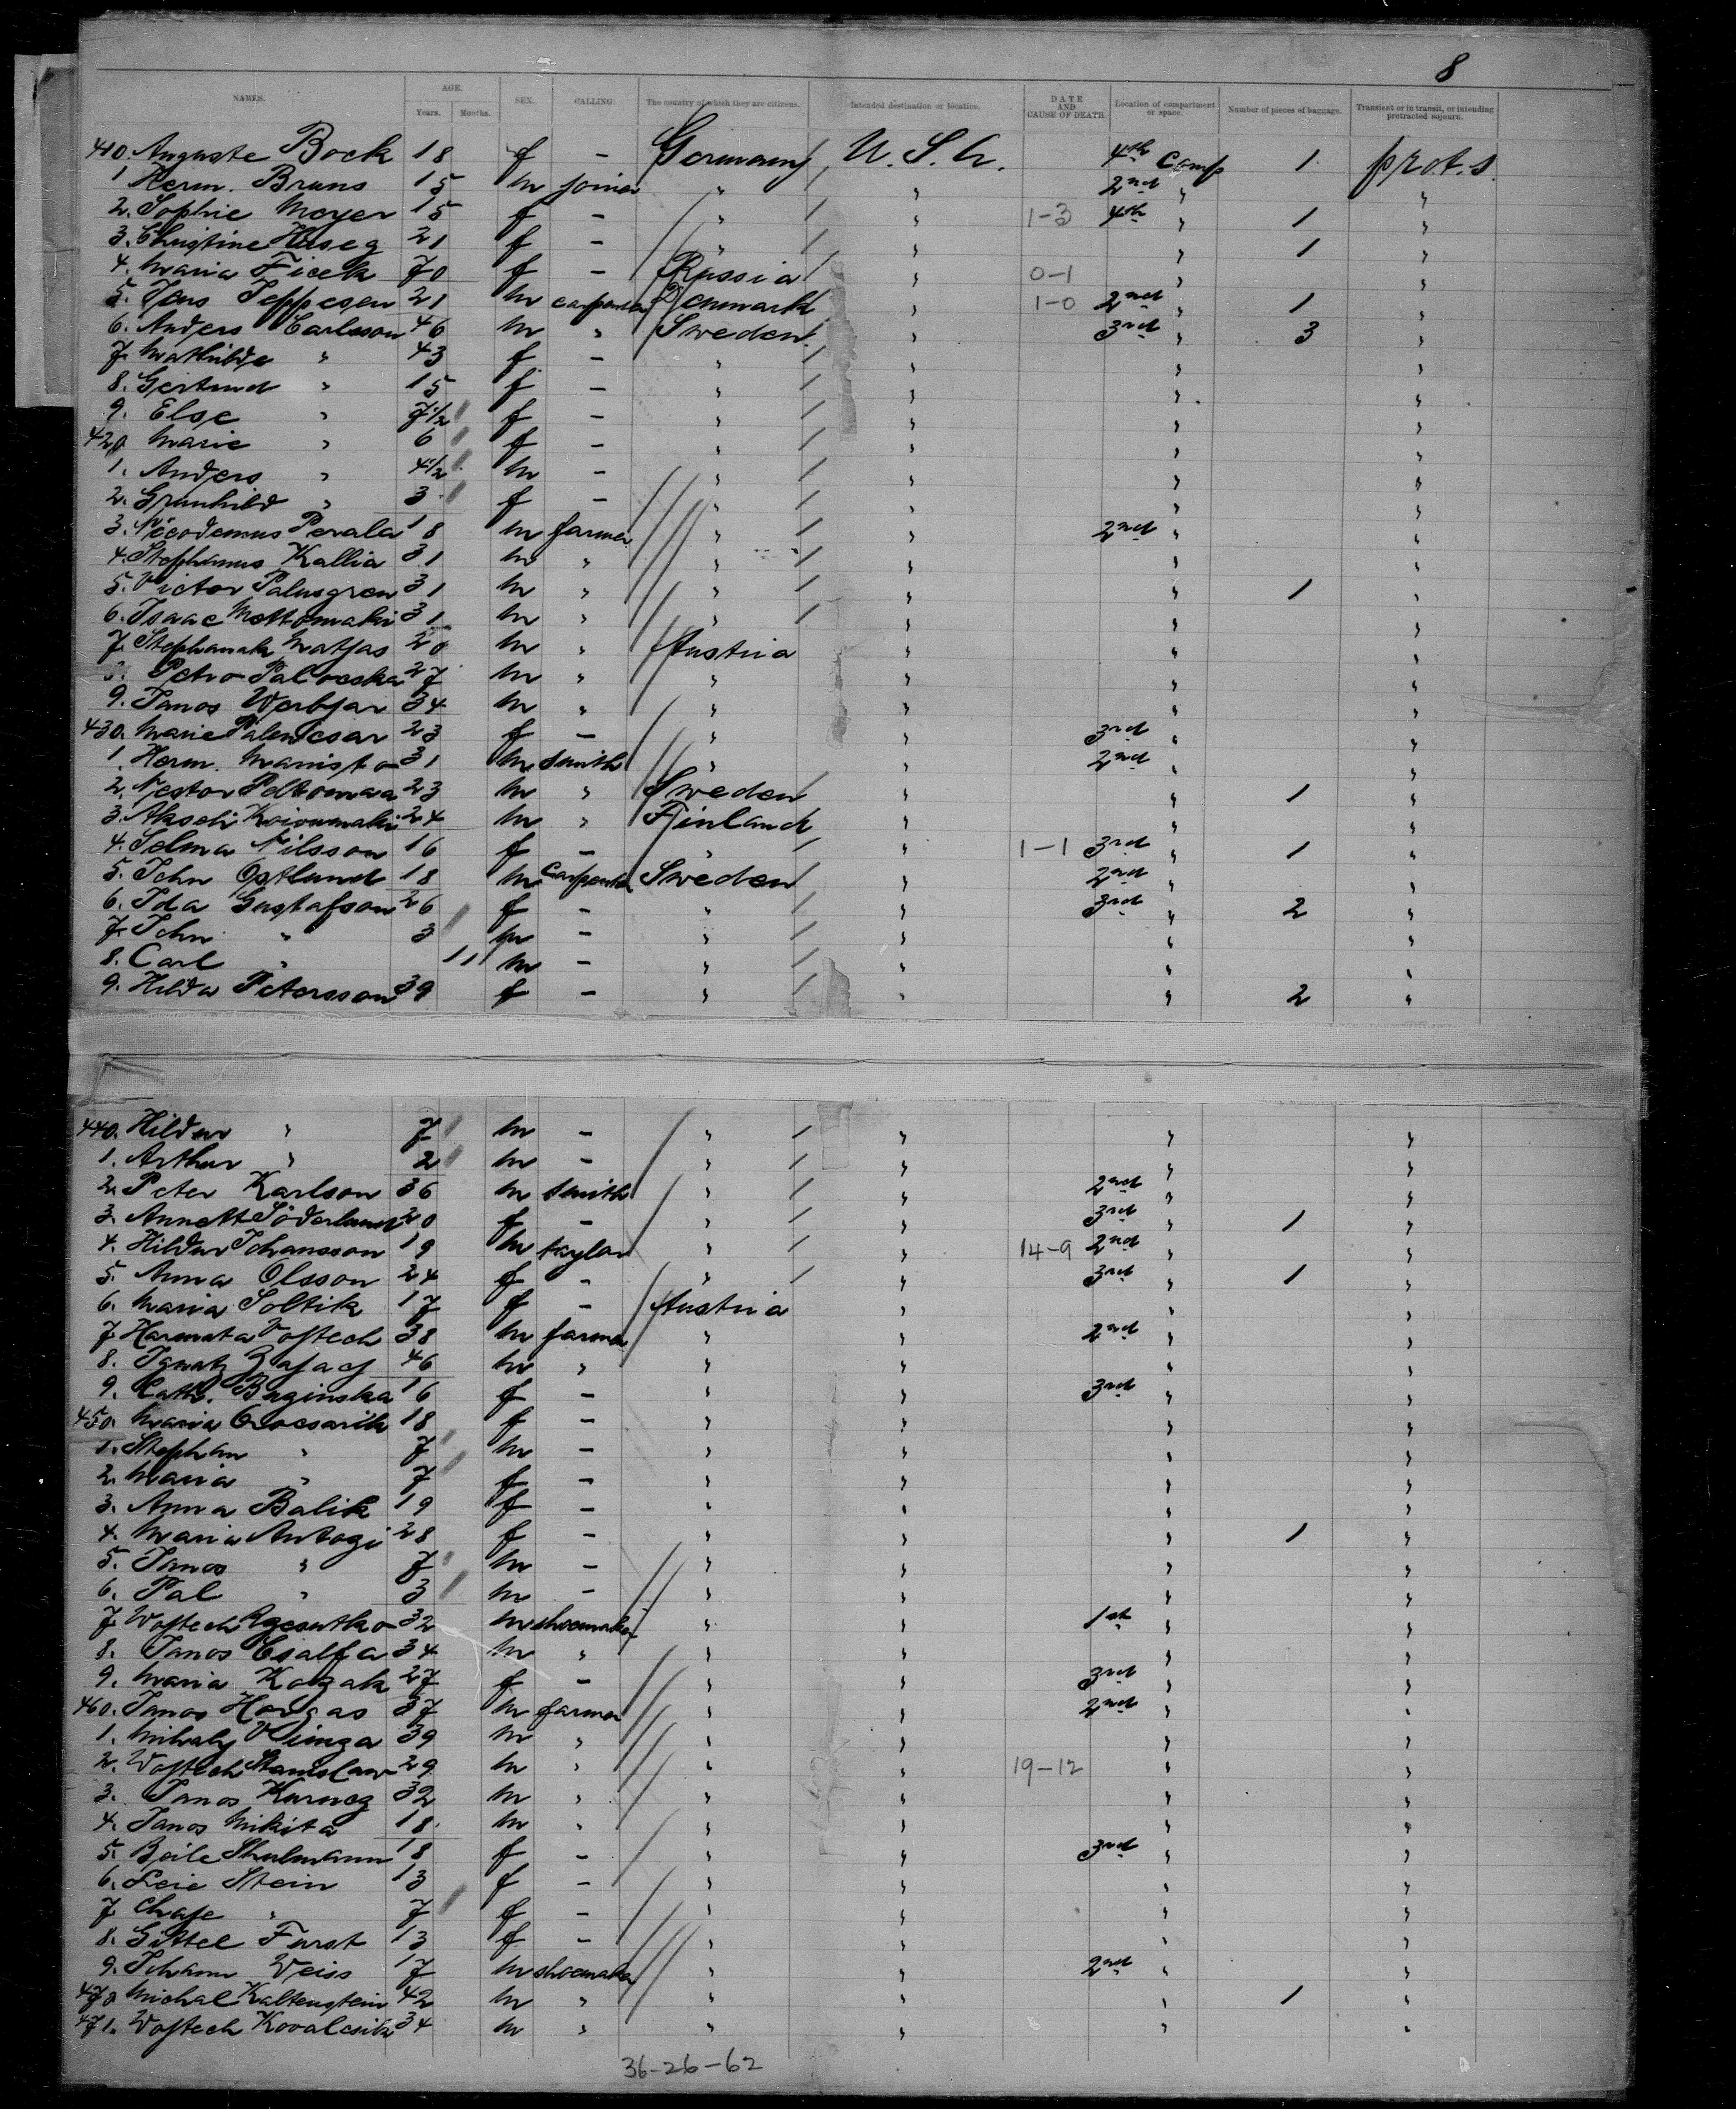 8
NAMES. AGE. Years. Months. SEX. CALLING. The country of which they are citizens. Intended destination or location. DATE AND CAUSE OF DEATH. Location of compartment or space. Number of pieces of baggage. Transient or in transit, or intending protracted sojourn.
410. Auguste Bock 18 f - Germany U.S.A. 4th Comp 1 prot. s.
1. Herm. Bruns 15 m joiner " " 2nd " "
2. Sophie Meyer 15 f - " " 1-3 4th " 1 "
3. Christine 21 f - " " " 1 "
4. Maria Ficek 70 f - Russia " 0-1 " "
5. Jens Jeppesen 21 m carpenter Denmark " 1-0 2nd " 1 "
6. Anders Carlsson 46 m " Sweden " 3rd " 3 "
7. Mathilde " 43 f - " " " "
8. Gertrud " 15 f - " " " "
9. Else " 7 1/2 f - " " " "
420 Marie " 6 f - " " " "
1. Anders " 4 1/2 m - " " " "
2. " 3 f - " " " "
3. Nicodemus Perala 18 m farmer " " 2nd " "
4. Stephanus Kallia 31 m " " " " "
5. Victor Palmgren 31 m " " " " 1 "
6. Isaac Mottomaki 31 m " " " " "
7. Stephanak Matjas 20 m " Austria " " "
8. Petro 27 m " " " " "
9. Janos Werbjar 34 m " " " " "
430. Marie Palencsar 23 f - " " 3rd " "
1. Herm. Manisto 31 m smith " " 2nd " "
2. Nestor Peltomaa 23 m " Sweden " " 1 "
3. Akseli Koivumaki 24 m " Finland " " "
4. Selma Nilsson 16 f - " " 1-1 3rd " 1 "
5. John Ostlund 18 m Carpenter Sweden " 2nd " "
6. Ida Gustafson 26 f - " " 3rd " 2 "
7. John " 3 m - " " " "
8. Carl " 11 m - " " " "
9. Hilda Petersson 39 f - " " " 2 "
440. Hildur " 7 m - " " " "
1. Arthur " 2 m - " " " "
2. Peter Karlson 36 m smith " " 2nd " "
3. Annett Söderlund 20 f - " " 3rd " 1 "
4. Hildur Johansson 19 m taylor " " 14-9 2nd " "
5. Anna Olsson 24 f - " " 3rd " 1 "
6. Maria Soltik 17 f - Austria " " "
7. Harmata Vojtech 38 m farmer " " 2nd " "
8. Ignatz Zajacz 46 m " " " " "
9. Kath. Buginska 16 f - " " 3rd " "
450. Maria 18 f - " " " "
1. Stephan " 7 m - " " " "
2. Maria " 7 f - " " " "
3. Anna Balik 19 f - " " " "
4. Maria Antogi 28 f - " " " 1 "
5. Janos " 7 m - " " " "
6. Pal " 3 m - " " " "
7. Wojtech 32 m shoemaker " " 1st " "
8. Janos Csalfa 34 m " " " " "
9. Maria Kozak 27 f - " " 3rd " "
460. Janos Horgas 37 m farmer " " 2nd " "
1. Mihaly 39 m " " " " "
2. Wojtech Stanislaw 29 m " " " 19-12 " "
3. Janos Kurucz 32 m " " " " "
4. Janos Mikita 18 m " " " " "
5. Beile Shulmann 18 f - " " 3rd " "
6. Leie Stein 13 f - " " " "
7. Chaje " 7 f - " " " "
8. Gittel Furst 13 f - " " " "
9. Johann Weiss 17 m shoemaker " " 2nd " "
470 Michal Kaltenstein 42 m " " " " 1 "
471. Wojtech Kovalcsik 34 m " " " " "
36-26-62